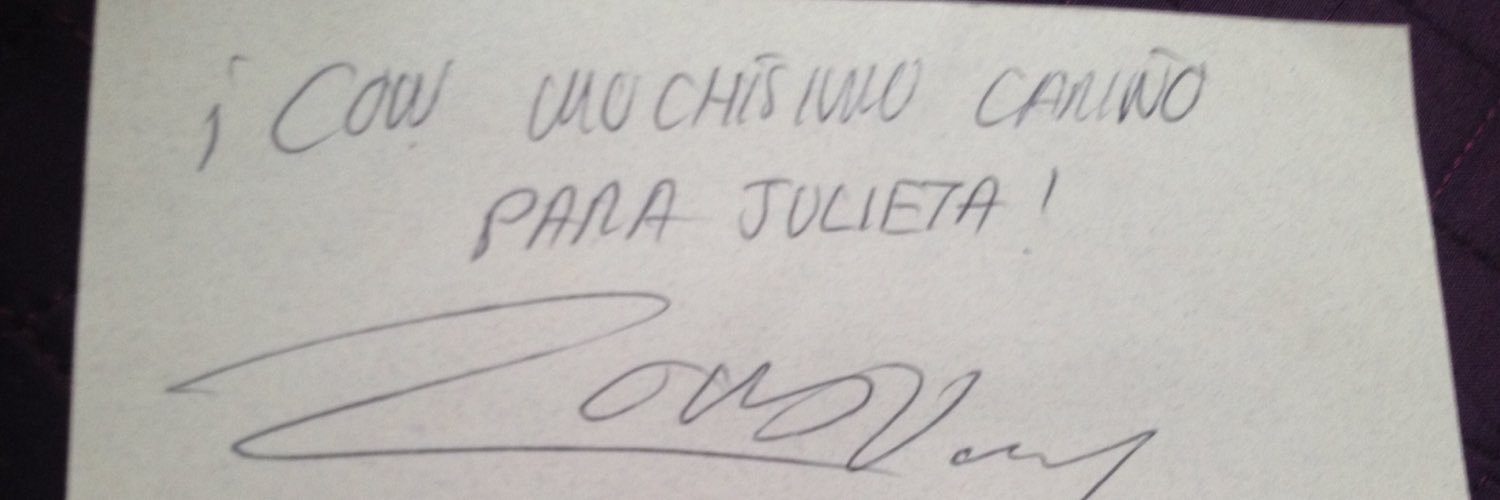 ¡CON MUCHÍSIMO CARIÑO
PARA JULIETA!